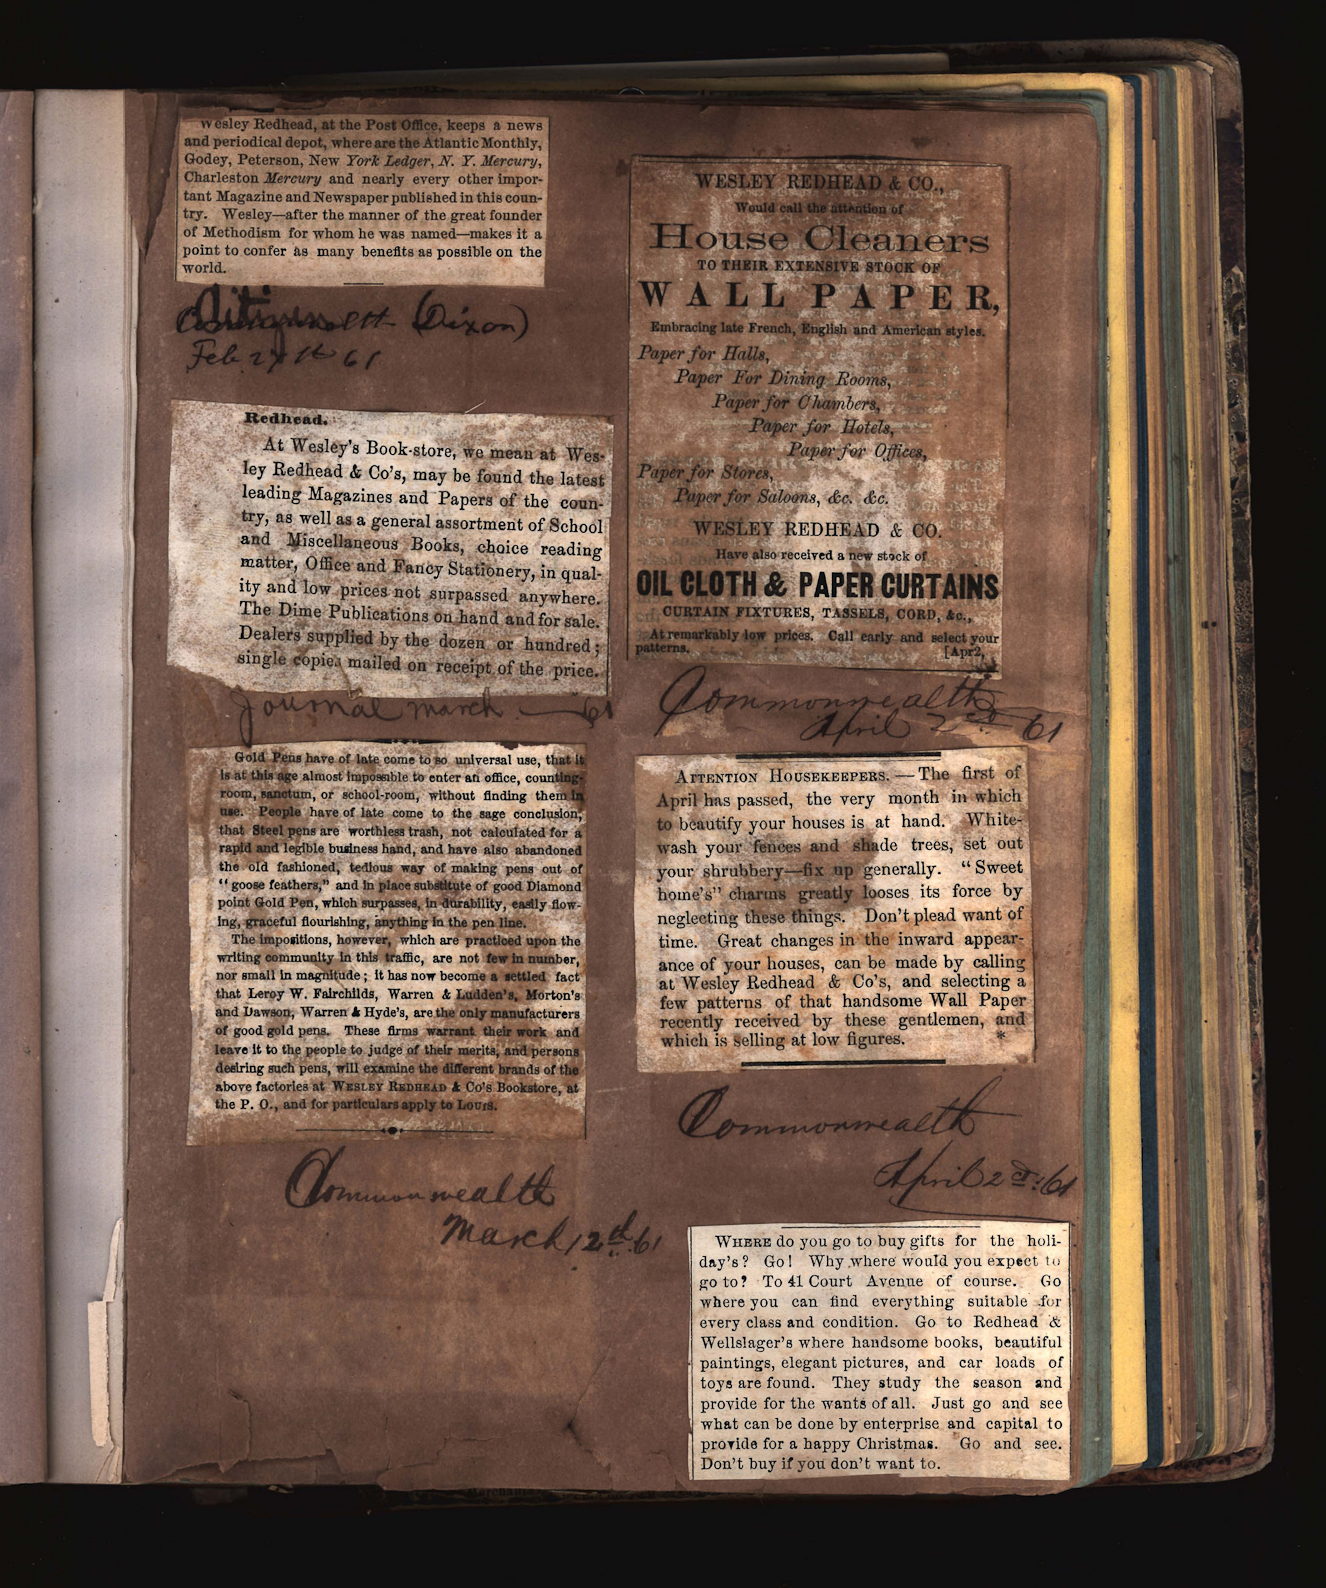 Wesley Redhead, at the Post Office, keeps a news
and periodical depot, where are the Atlantic Monthly,
Godey, Peterson, New York Ledger, N. Y. Mercury,
Charleston Mercury and nearly every other impor-
tant Magazine and Newspaper published in this coun-
try. Wesley—after the manner of the great founder
of Methodism for whom he was named—makes it a
point to confer as many benefits as possible on the
world.
Citizen (Dixon)
Feb 61
Redhead.
At Wesley's Book-store, we mean at Wes-
ley Redhead & Co's, may be found the latest
leading Magazines and Papers of the coun-
try, as well as a general assortment of School
and Miscellaneous Books, choice reading
matter, Office and Fancy Stationery, in qual-
ity and low prices not surpassed anywhere.
The Dime Publications on hand and for sale.
Dealers supplied by the dozen or hundred;
single copies mailed on receipt of the price.
Journal March — 61
Gold Pens have of late come to so universal use, that it
is at this age almost impossible to enter an office, counting-
room, sanctum, or school-room, without finding them in
use. People have of late come to the sage conclusion,
that Steel pens are worthless trash, not calculated for a
rapid and legible business hand, and have also abandoned
the old fashioned, tedious way of making pens out of
"goose feathers," and in place substitute of good Diamond
point Gold Pen, which surpasses, in durability, easily flow-
ing, graceful flourishing, anything in the pen line.
The impositions, however, which are practiced upon the
writing community in this traffic, are not few in number,
nor small in magnitude; it has now become a settled fact
that Leroy W. Fairchilds, Warren & Ludden's, Morton's
and Dawson, Warren & Hyde's, are the only manufacturers
of good gold pens. These firms warrant their work and
leave it to the people to judge of their merits, and persons
desiring such pens, will examine the different brands of the
above factories at WESLEY REDHEAD & Co's Bookstore, at
the P. O., and for particulars apply to LOUIS.
Commonwealth
March 12th. 61
WESLEY REDHEAD & CO.,
Would call the attention of
House Cleaners
TO THEIR EXTENSIVE STOCK OF
WALL PAPER,
Embracing late French, English and American styles.
Paper for Halls,
Paper For Dining Rooms,
Paper for Chambers,
Paper for Hotels,
Paper for Offices,
Paper for Stores,
Paper for Saloons, &c. &c.
WESLEY REDHEAD & CO.
Have also received a new stock of
OIL CLOTH & PAPER CURTAINS
CURTAIN FIXTURES, TASSELS, CORD, &c.,
At remarkably low prices. Call early and select your
patterns. [Apr2,
Commonwealth
April 2nd. 61
ATTENTION HOUSEKEEPERS.—The first of
April has passed, the very month in which
to beautify your houses is at hand. White-
wash your fences and shade trees, set out
your shrubbery—fix up generally. "Sweet
home's" charms greatly looses its force by
neglecting these things. Don't plead want of
time. Great changes in the inward appear-
ance of your houses, can be made by calling
at Wesley Redhead & Co's, and selecting a
few patterns of that handsome Wall Paper
recently received by these gentlemen, and
which is selling at low figures. *
Commonwealth
April 2nd. 61
WHERE do you go to buy gifts for the holi-
day's? Go! Why where would you expect to
go to? To 41 Court Avenue of course. Go
where you can find everything suitable for
every class and condition. Go to Redhead &
Wellslager's where handsome books, beautiful
paintings, elegant pictures, and car loads of
toys are found. They study the season and
provide for the wants of all. Just go and see
what can be done by enterprise and capital to
provide for a happy Christmas. Go and see.
Don't buy if you don't want to.